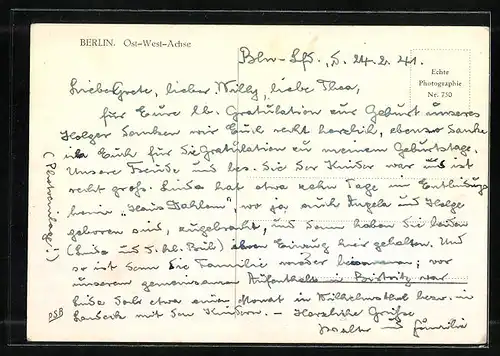 BERLIN. Ost-West-Achse
Bln-Lfd., d. 24.2.41.
Echte
Photographie
Nr. 750
Liebe Grete, lieber Willy, liebe Thea,
für Eure lb. Gratulation zur Geburt unseres
Holger danken wir Euch recht herzlich, ebenso danke
ich Euch für die Gratulation zu meinem Geburtstage.
Unsere Freude und bes. die der Kinder war und ist
recht groß. hat etwa zehn Tage im Entbindungs-
heim „Haus Dahlem" wo ja auch Angela und Holger
geboren sind, zugebracht, und dann haben die beiden
( und ) ihren Einzug hier gehalten. Und
so ist denn die Familie wieder beisammen; vor
unserem gemeinsamen Aufenthalt in war
etwa einen Monat in Wilhelmsthal bezw. in
Landeck mit den Kindern. — Herzliche Grüße
Walter und Familie
(Platzmangel!)
PSB